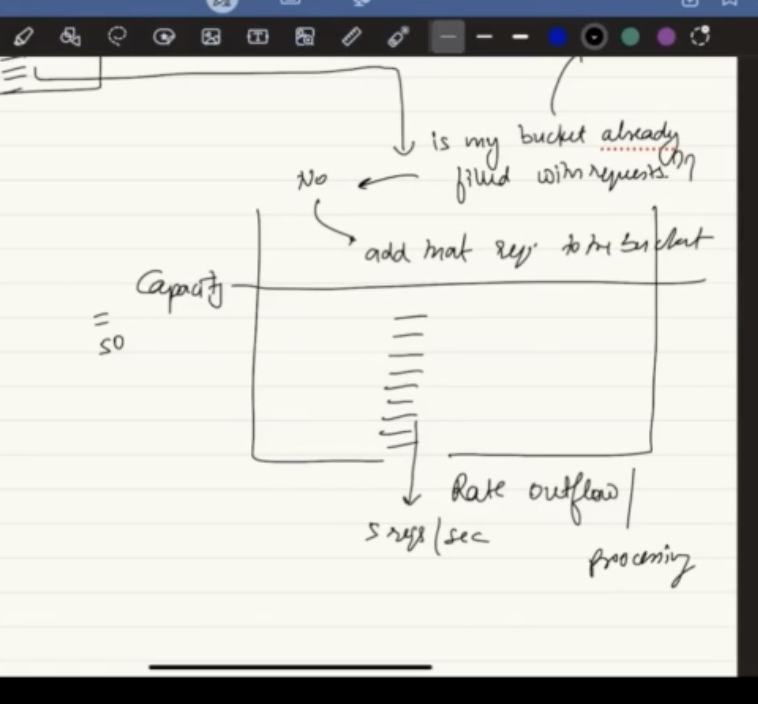 is my bucket already
filled with requests?
No
add that req. to the bucket
Capacity
=
50
Rate outflow/
processing
5 reqs/sec